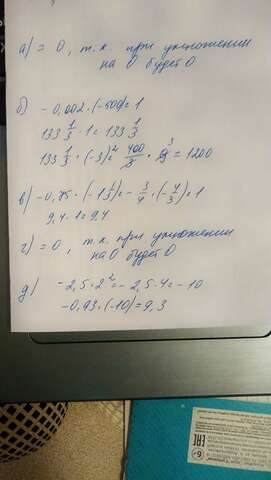 а) = 0, т.к. при умножении
на 0 будет 0
б)
- 0,002 · (-500) = 1
133 1/3 · 1 = 133 1/3
133 1/3 · (-3)² = 400/3 · 9 3 = 1200
в) - 0,75 · (-1 1/3) = - 3/4 · (- 4/3) = 1
9,4 · 1 = 9,4
г) = 0, т.к. при умножении
на 0 будет 0
д) -2,5 · 2² = -2,5 · 4 = -10
-0,93 · (-10) = 9,3
EAC